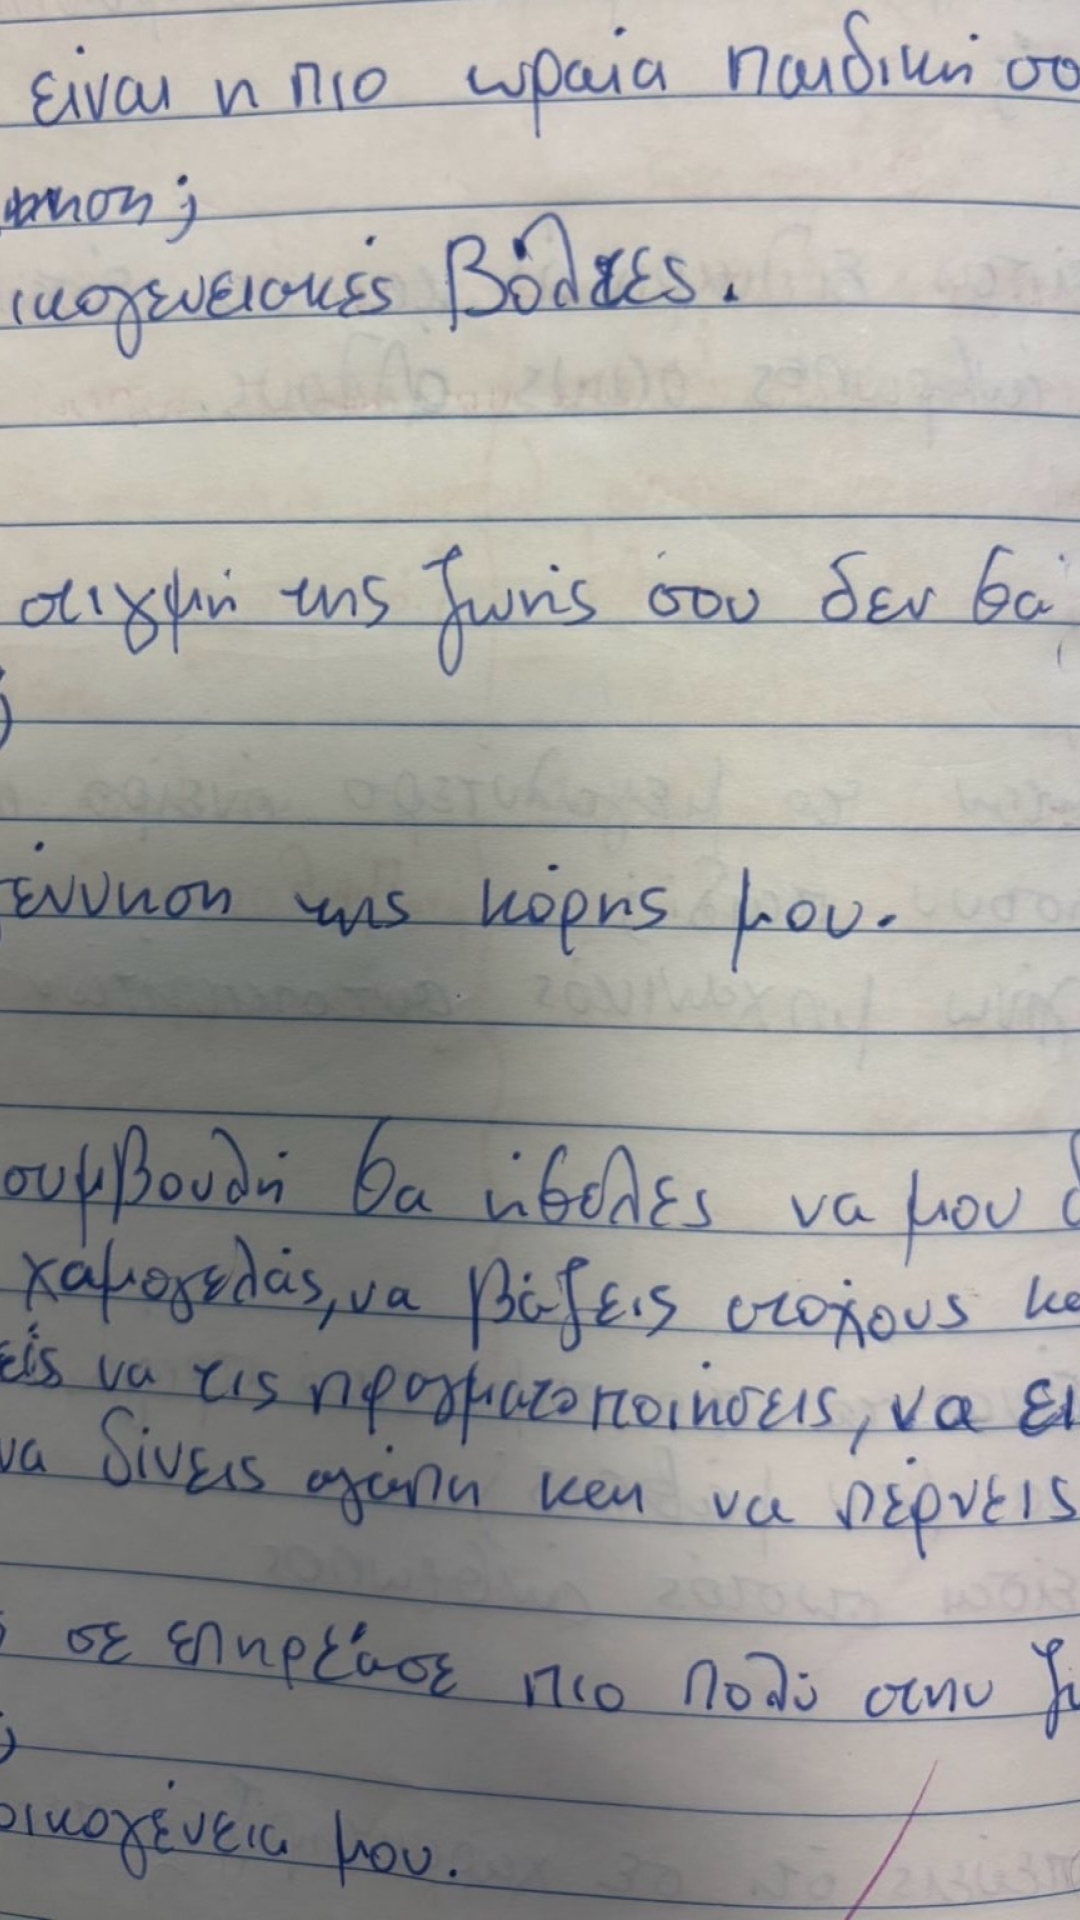 είναι η πιο ωραία παιδική σο
ικογενειακές βόλτες.
στιγμή της ζωής σου δεν θα
έννηση της κόρης μου.
συμβουλή θα ήθελες να μου δ
χαμογελάς, να βάζεις στόχους κα
είς να τις πραγματοποιήσεις, να εί
να δίνεις αγάπη και να πέρνεις
σε επηρέασε πιο πολύ στην ζω
;
οικογένεια μου.